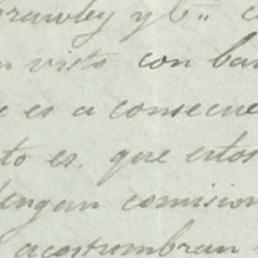 Crawley y Cª.. c
n visto con ba
e es a consecue
to es, que estos
tengan comision
acostumbran